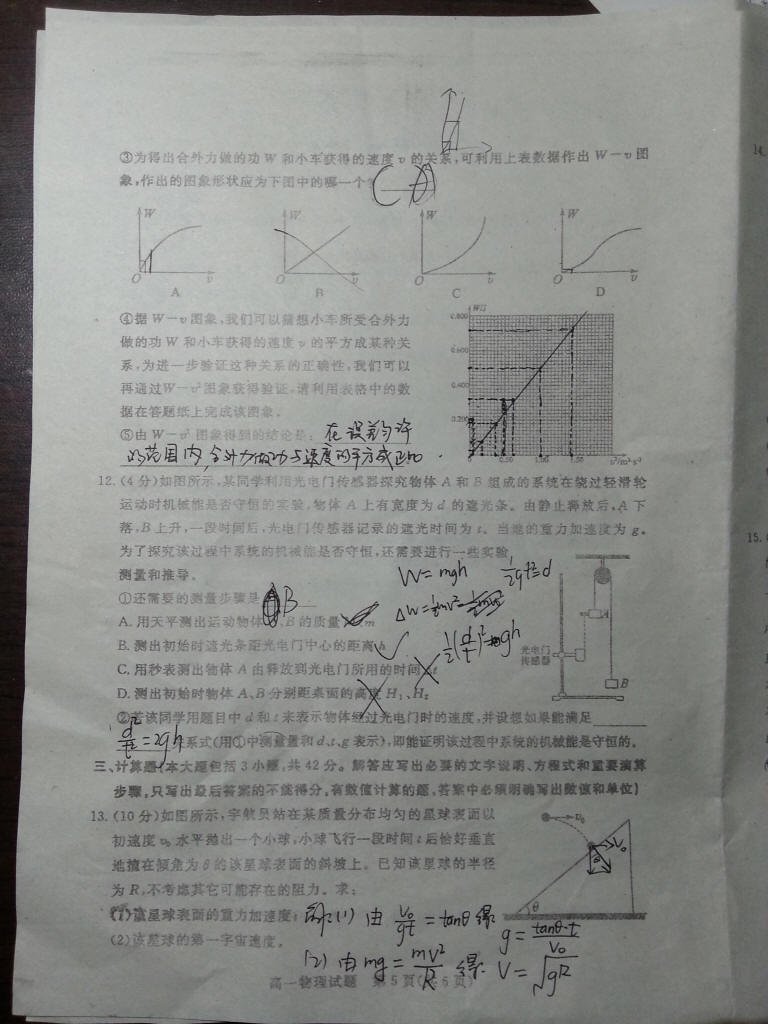 ③为得出合外力做的功W和小车获得的速度v的关系,可利用上表数据作出W－v图
象,作出的图象形状应为下图中的哪一个? C
W W W W
O v O v O v O v
A B C D
④据W－v图象,我们可以猜想小车所受合外力
做的功W和小车获得的速度v的平方成某种关
系,为进一步验证这种关系的正确性,我们可以
再通过W－v²图象获得验证,请利用表格中的数
据在答题纸上完成该图象。
W/J
0.800
0.600
0.400
0.200
0 0.50 1.00 1.50 v²/m²·s⁻²
⑤由W－v²图象得到的结论是: 在误差允许
的范围内,合外力做功与速度的平方成正比.
12.(4分)如图所示,某同学利用光电门传感器探究物体A和B组成的系统在绕过轻滑轮
运动时机械能是否守恒的实验,物体A上有宽度为d的遮光条。由静止释放后,A下
落,B上升,一段时间后,光电门传感器记录的遮光时间为t。当地的重力加速度为g。
为了探究该过程中系统的机械能是否守恒,还需要进行一些实验
测量和推导。
W=mgh ½gt²=d
①还需要的测量步骤是 B
A.用天平测出运动物体 、B的质量 m
ΔW=½mv²=
B.测出初始时遮光条距光电门中心的距离h
½(d/t)²= gh
C.用秒表测出物体A由释放到光电门所用的时间Δt
D.测出初始时物体A、B分别距桌面的高度H₁、H₂
光电门
传感器
B
②若该同学用题目中d和t来表示物体经过光电门时的速度,并设想如果能满足
d²/t²=2gh 系式(用①中测量量和d、t、g表示),即能证明该过程中系统的机械能是守恒的。
三、计算题(本大题包括3小题,共42分。解答应写出必要的文字说明、方程式和重要演算
步骤,只写出最后答案的不能得分,有数值计算的题,答案中必须明确写出数值和单位)
13.(10分)如图所示,宇航员站在某质量分布均匀的星球表面以
初速度v₀水平抛出一个小球,小球飞行一段时间t后恰好垂直
地撞在倾角为θ的该星球表面的斜坡上。已知该星球的半径
为R,不考虑其它可能存在的阻力。求:
v₀
V₀
θ
θ
(1)该星球表面的重力加速度;
(2)该星球的第一宇宙速度。
解:(1) 由 V₀/gt = tanθ 得 g = tanθ·t/V₀
(2) 由 mg = mV²/R 得 V = √gR
高一物理试题 第5页(共6页)
14.
15.